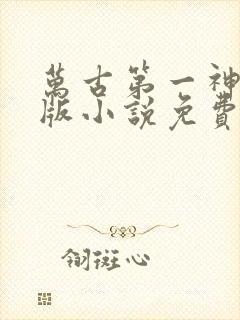 萬古第一神
版小說免費
翎斑心